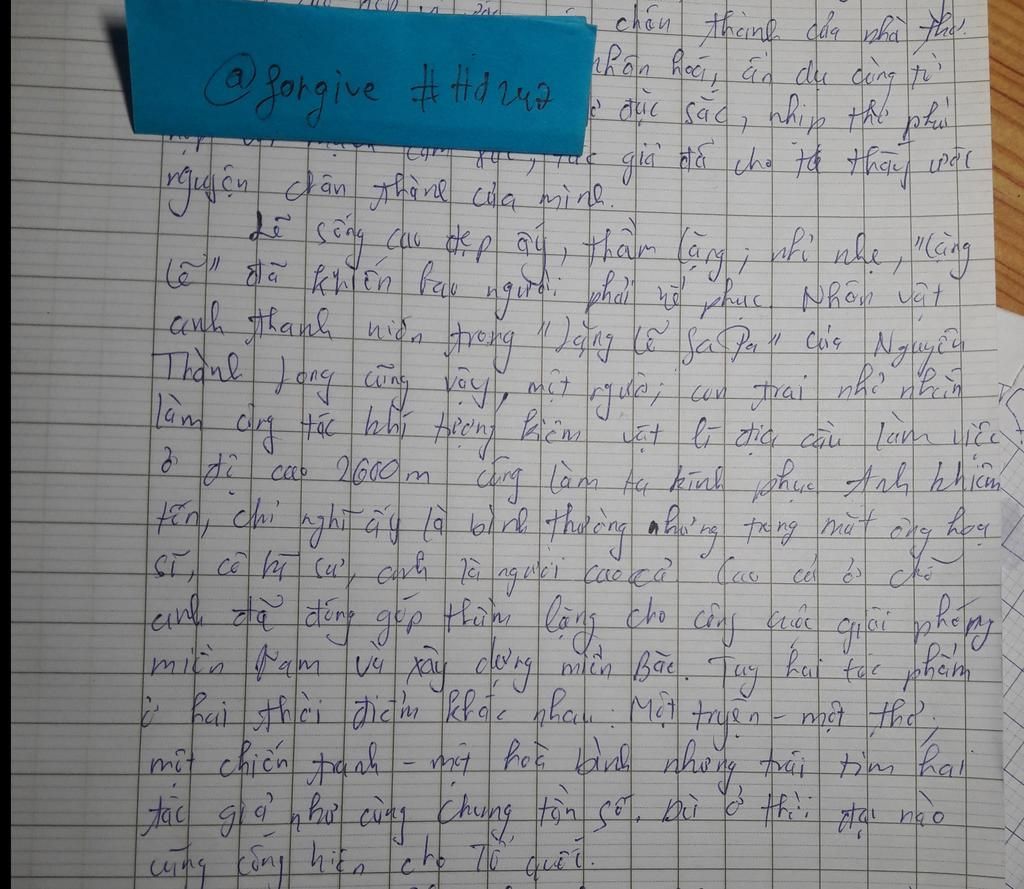 chân thành của nhà thơ.
@forgive #Hd247
nhân hoá, ẩn dụ cùng từ
đặc sắc, nhịp thơ phù
cảm xúc, tác giả đã cho ta thấy ước
nguyện chân thành của mình.
Lẽ sống cao đẹp ấy, thầm lặng, nhỏ nhẹ, "lặng
lẽ" đã khiến bao người phải nể phục. Nhân vật
anh thanh niên trong "Lặng lẽ Sa Pa" của Nguyễn
Thành Long cũng vậy, một người con trai nhỏ nhắn
làm công tác khí tượng kiêm vật lí địa cầu làm việc
ở độ cao 2600m cũng làm ta kính phục. Anh khiêm
tốn, chỉ nghĩ ấy là bình thường nhưng trong mắt ông hoạ
sĩ, cô kĩ sư, anh là người cao cả. Cao cả ở chỗ
anh đã đóng góp thầm lặng cho công cuộc giải phóng
miền Nam và xây dựng miền Bắc. Tuy hai tác phẩm
ở hai thời điểm khác nhau: Một truyện - một thơ,
một chiến tranh - một hoà bình nhưng trái tim hai
tác giả như cùng chung tần số. Dù ở thời đại nào
cũng cống hiến cho Tổ quốc.